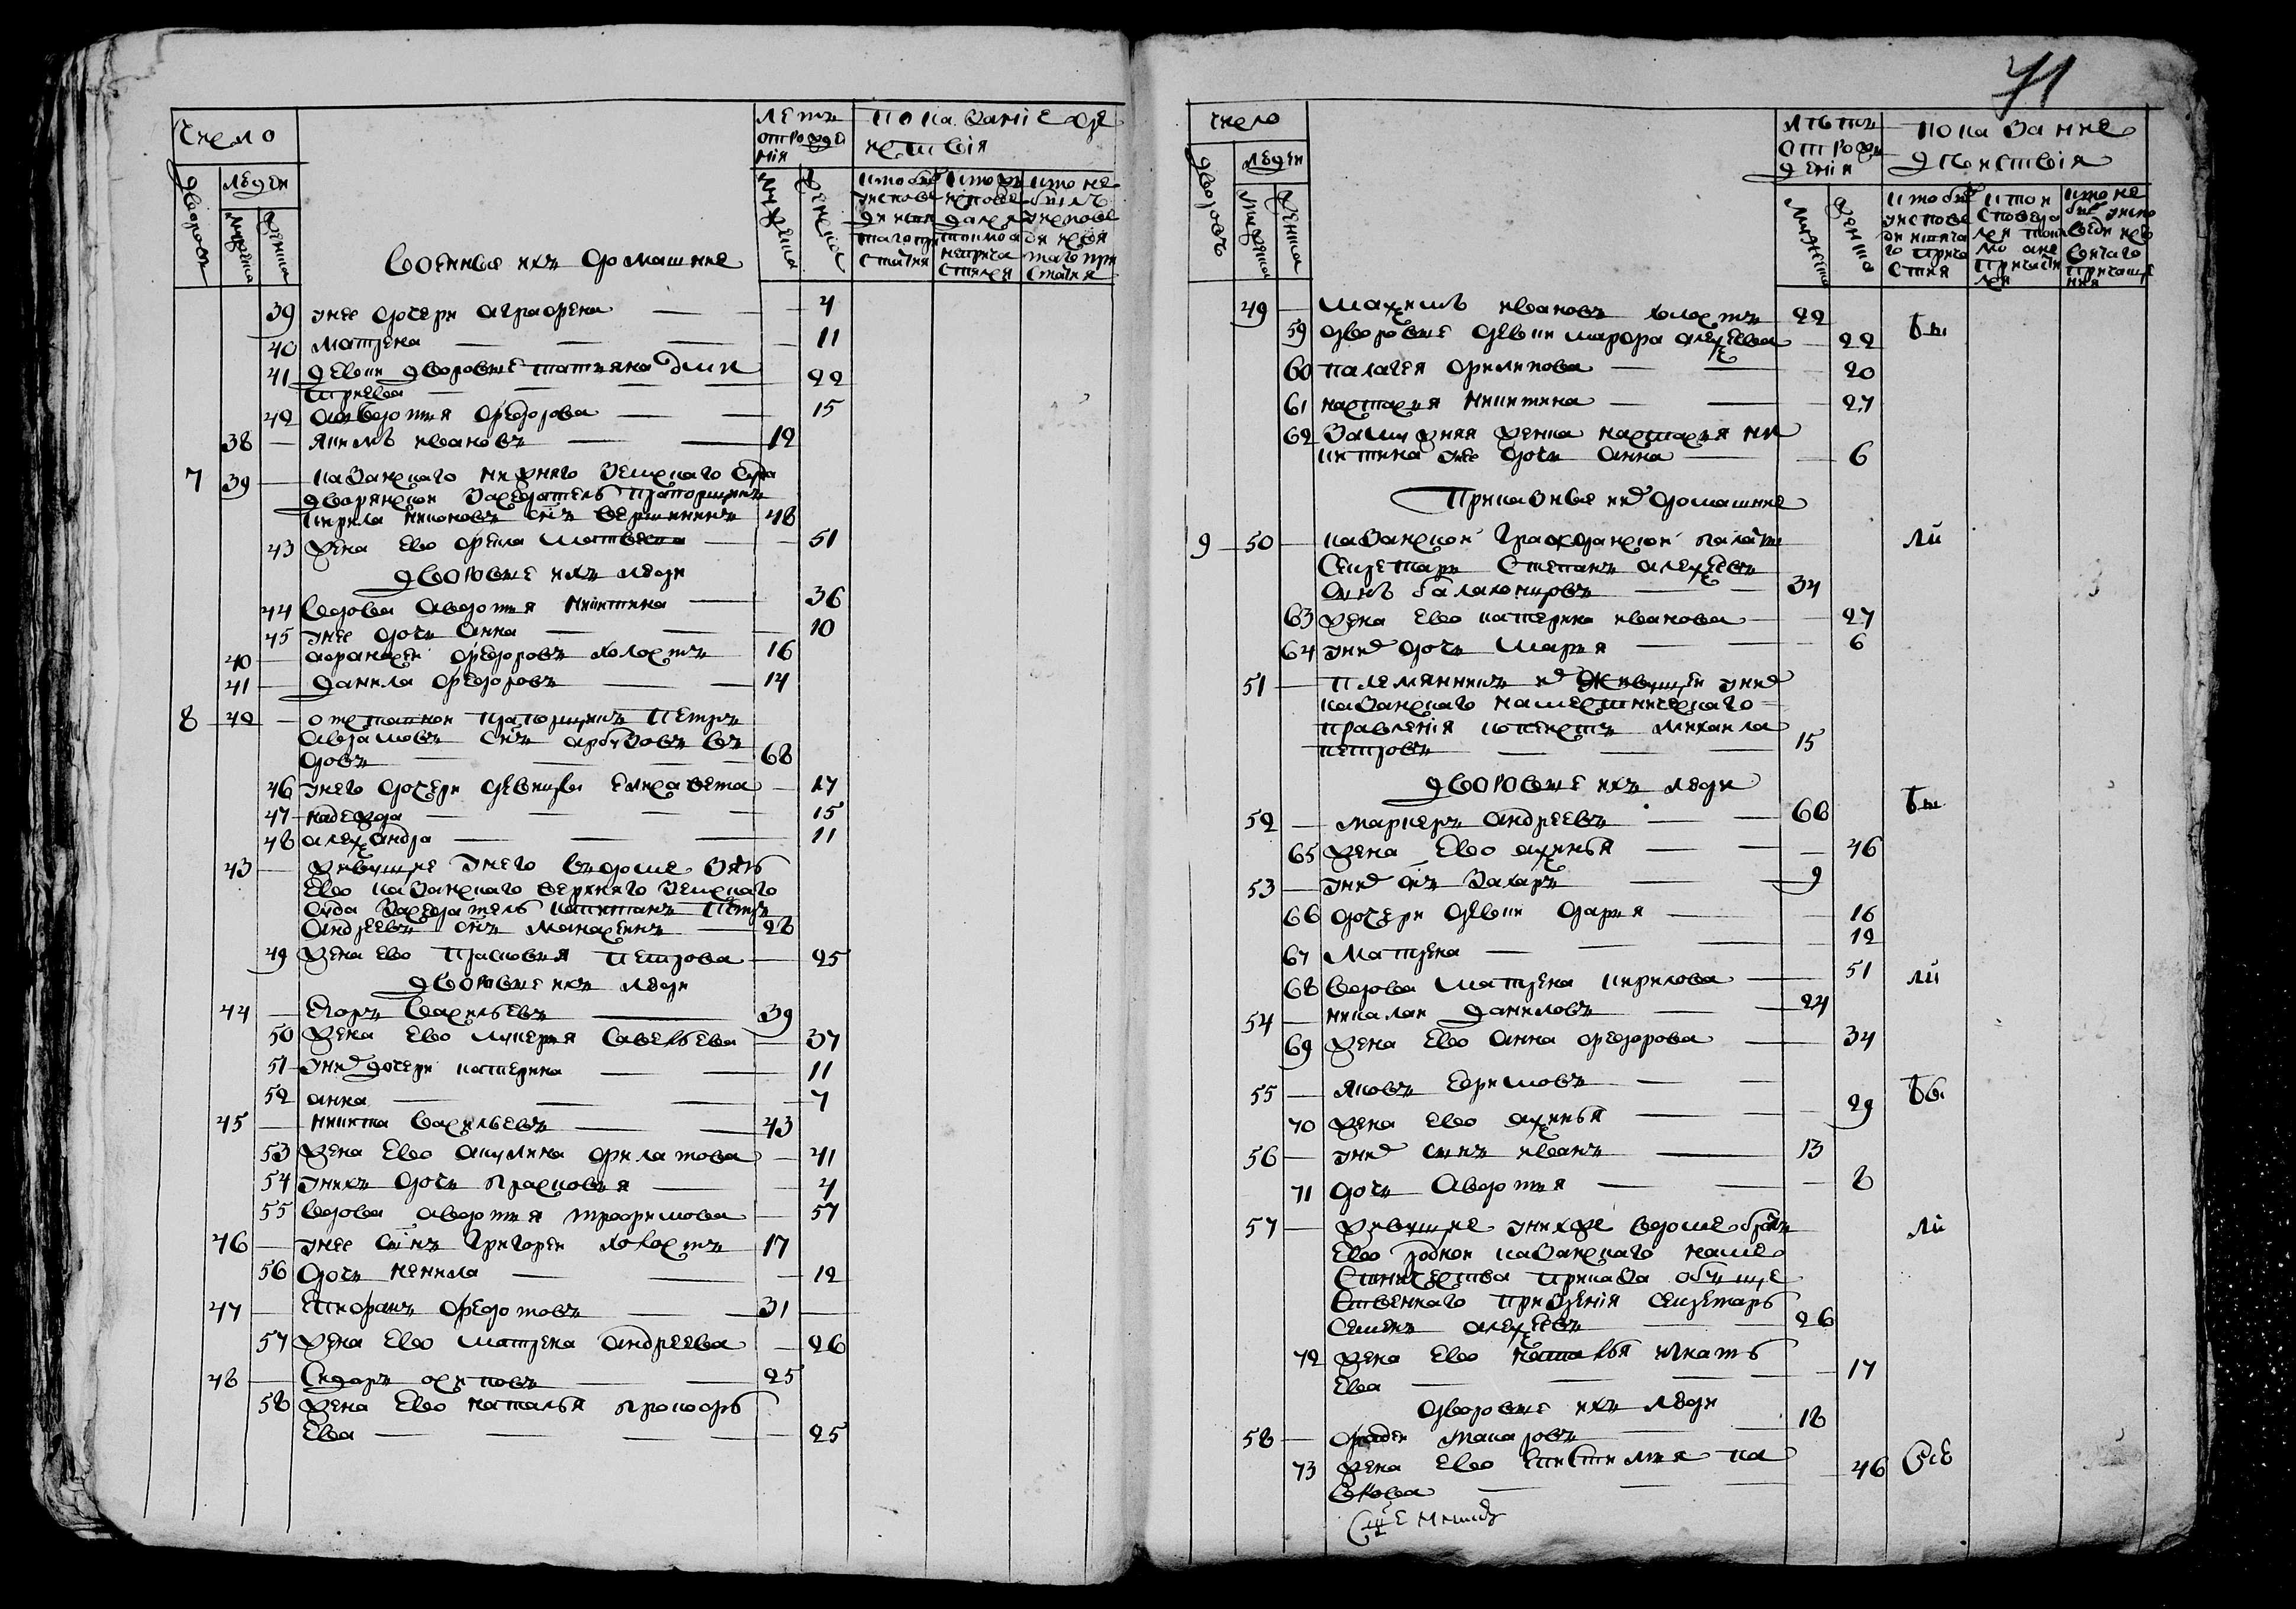 число
дворовъ
людей
мужеска
женска
Военные ихъ домашние
летъ
от рожде
ния
мужеска
женска
показание де
йствия
39 унее дочери аграфена — 4
40 матрена — 11
41 девки дворовые татьяна дми
триева — 22
42 авдотия федорова — 15
38 — якимъ ивановъ — 12
7 39 — казанскаго нижняго земскаго суда
дворянской заседатель прапорщикъ
кирила никоновъ снъ вершининъ 48
43 жена ево фекла матвеева — 51
дворовые ихъ люди
44 вдова авдотия никитина — 36
45 унее дочь анна — 10
40 — афанасеи федоровъ холостъ 16
41 — данила федоровъ — 14
8 42 — отставной прапорщикъ петръ
аврамовъ снъ арбузовъ въ
довъ — 68
46 унего дочери девицы елисавета — 17
47 надежда — 15
48 александра — 11
43 — живущие унего вдоме зять
ево казанскаго верхняго земскаго
суда заседатель капитанъ петръ
андреевъ снъ манасеинъ — 28
49 жена ево прасковия петрова — 25
дворовые ихъ люди
44 — егоръ васильевъ — 39
50 жена ево лукерия савельева — 37
51 уних дочери катерина — 11
52 анна — 7
45 — никита васильевъ — 43
53 жена ево акулина филатова — 41
54 унихъ дочь прасковия — 4
55 вдова авдотия трофимова — 57
46 — унее сынъ григореи холостъ 17
56 дочь ненила — 12
47 — епифанъ федотовъ — 31
57 жена ево матрена андреева — 26
48 — сидоръ осиповъ — 25
58 жена ево наталья прокофь
ева — 25
41
число
дворовъ
людей
мужеска
женска
летъ
от рож
дения
мужеска
женска
показание
действия
49 — максимъ ивановъ холостъ 22
59 дворовые девки марфа алексеева — 22 бы
60 палагея филипова — 20
61 настасия никитина — 27
62 замужняя женка настасия ни
китина унее дочь анна — 6
Приказные их домашние
9 50 — казанской гражданской палаты ли
секретарь степанъ алексеевъ
сынъ балахонцовъ — 34
63 жена ево катерина иванова — 27
64 уних дочь мария — 6
51 — племянникъ их живущеи уних
казанскаго наместническаго
правления копеистъ михаила
петровъ — 15
дворовые ихъ люди
52 — маркеръ андреевъ — 66 бы
65 жена ево аксинья — 46
53 — уних снъ захаръ — 9
66 дочери девки дария — 16
67 матрена — 12
68 вдова матрена кирилова — 51 ли
54 — николаи даниловъ — 24
69 жена ево анна федорова — 34
55 — яковъ ефимовъ — бы
70 жена ево аксинья — 29
56 — уних сынъ иванъ — 13
71 дочь авдотия — 8
57 — живущие унихже вдоме братъ ли
ево роднои казанскаго наме
стничества приказа обще
ственнаго призрения секретарь
семенъ алексеевъ — 26
72 жена ево наталья игнать
ева — 17
дворовые ихъ люди
58 — фадеи макаровъ — 18
73 жена ево — 46 все